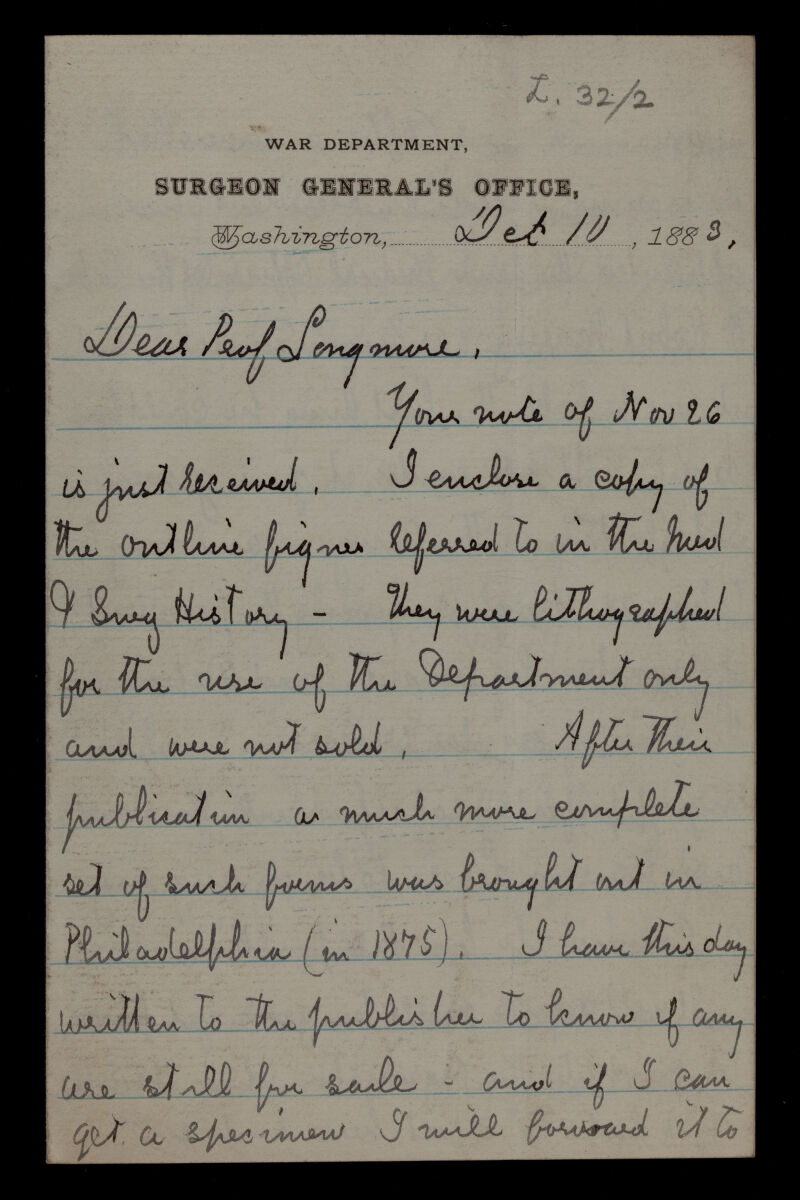 L. 32/2
WAR DEPARTMENT,
SURGEON GENERAL'S OFFICE,
Washington, Dec 10, 1883.
Dear Prof Longmore,
Your note of Nov 26
is just received. I enclose a copy of
the outline figures referred to in the Med
& Surg History – They were lithographed
for the use of the Department only
and were not sold. After their
publication a much more complete
set of such forms was brought out in
Philadelphia (in 1875). I have this day
written to the publisher to know if any
are still for sale – and if I can
get a specimen I will forward it to